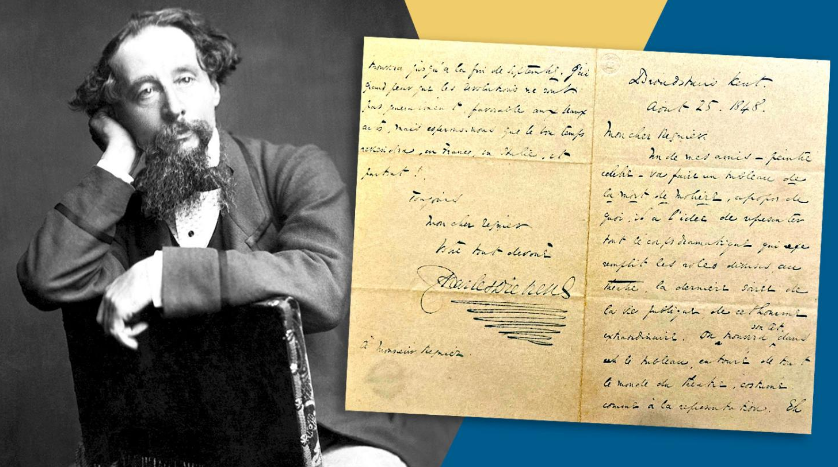 Broadstairs Kent.
Aout 25. 1848.
Mon cher Regnier.
Un de mes amis – peintre
celèbre – va faire un tableau de
la mort de Molière, apropos de
quoi, il a l'idée de representer
tout le corps dramatique qui
remplit les roles divers, au
théatre, la dernière soirée de
la vie publique de cet homme
extraordinaire. dans
le tableau, entouré de tout
le monde du théatre, costumé
comme à la representation. Eh
jusqu'à la fin de Septembre. J'ai
grand peur que les revolutions ne sont
pas favorable aux beaux
arts, mais que le bon temps
reviendra, en France, en Italie, et
partout!
Toujours
Mon cher Regnier
Votre tout devoué
Charles Dickens
à Monsieur Regnier.